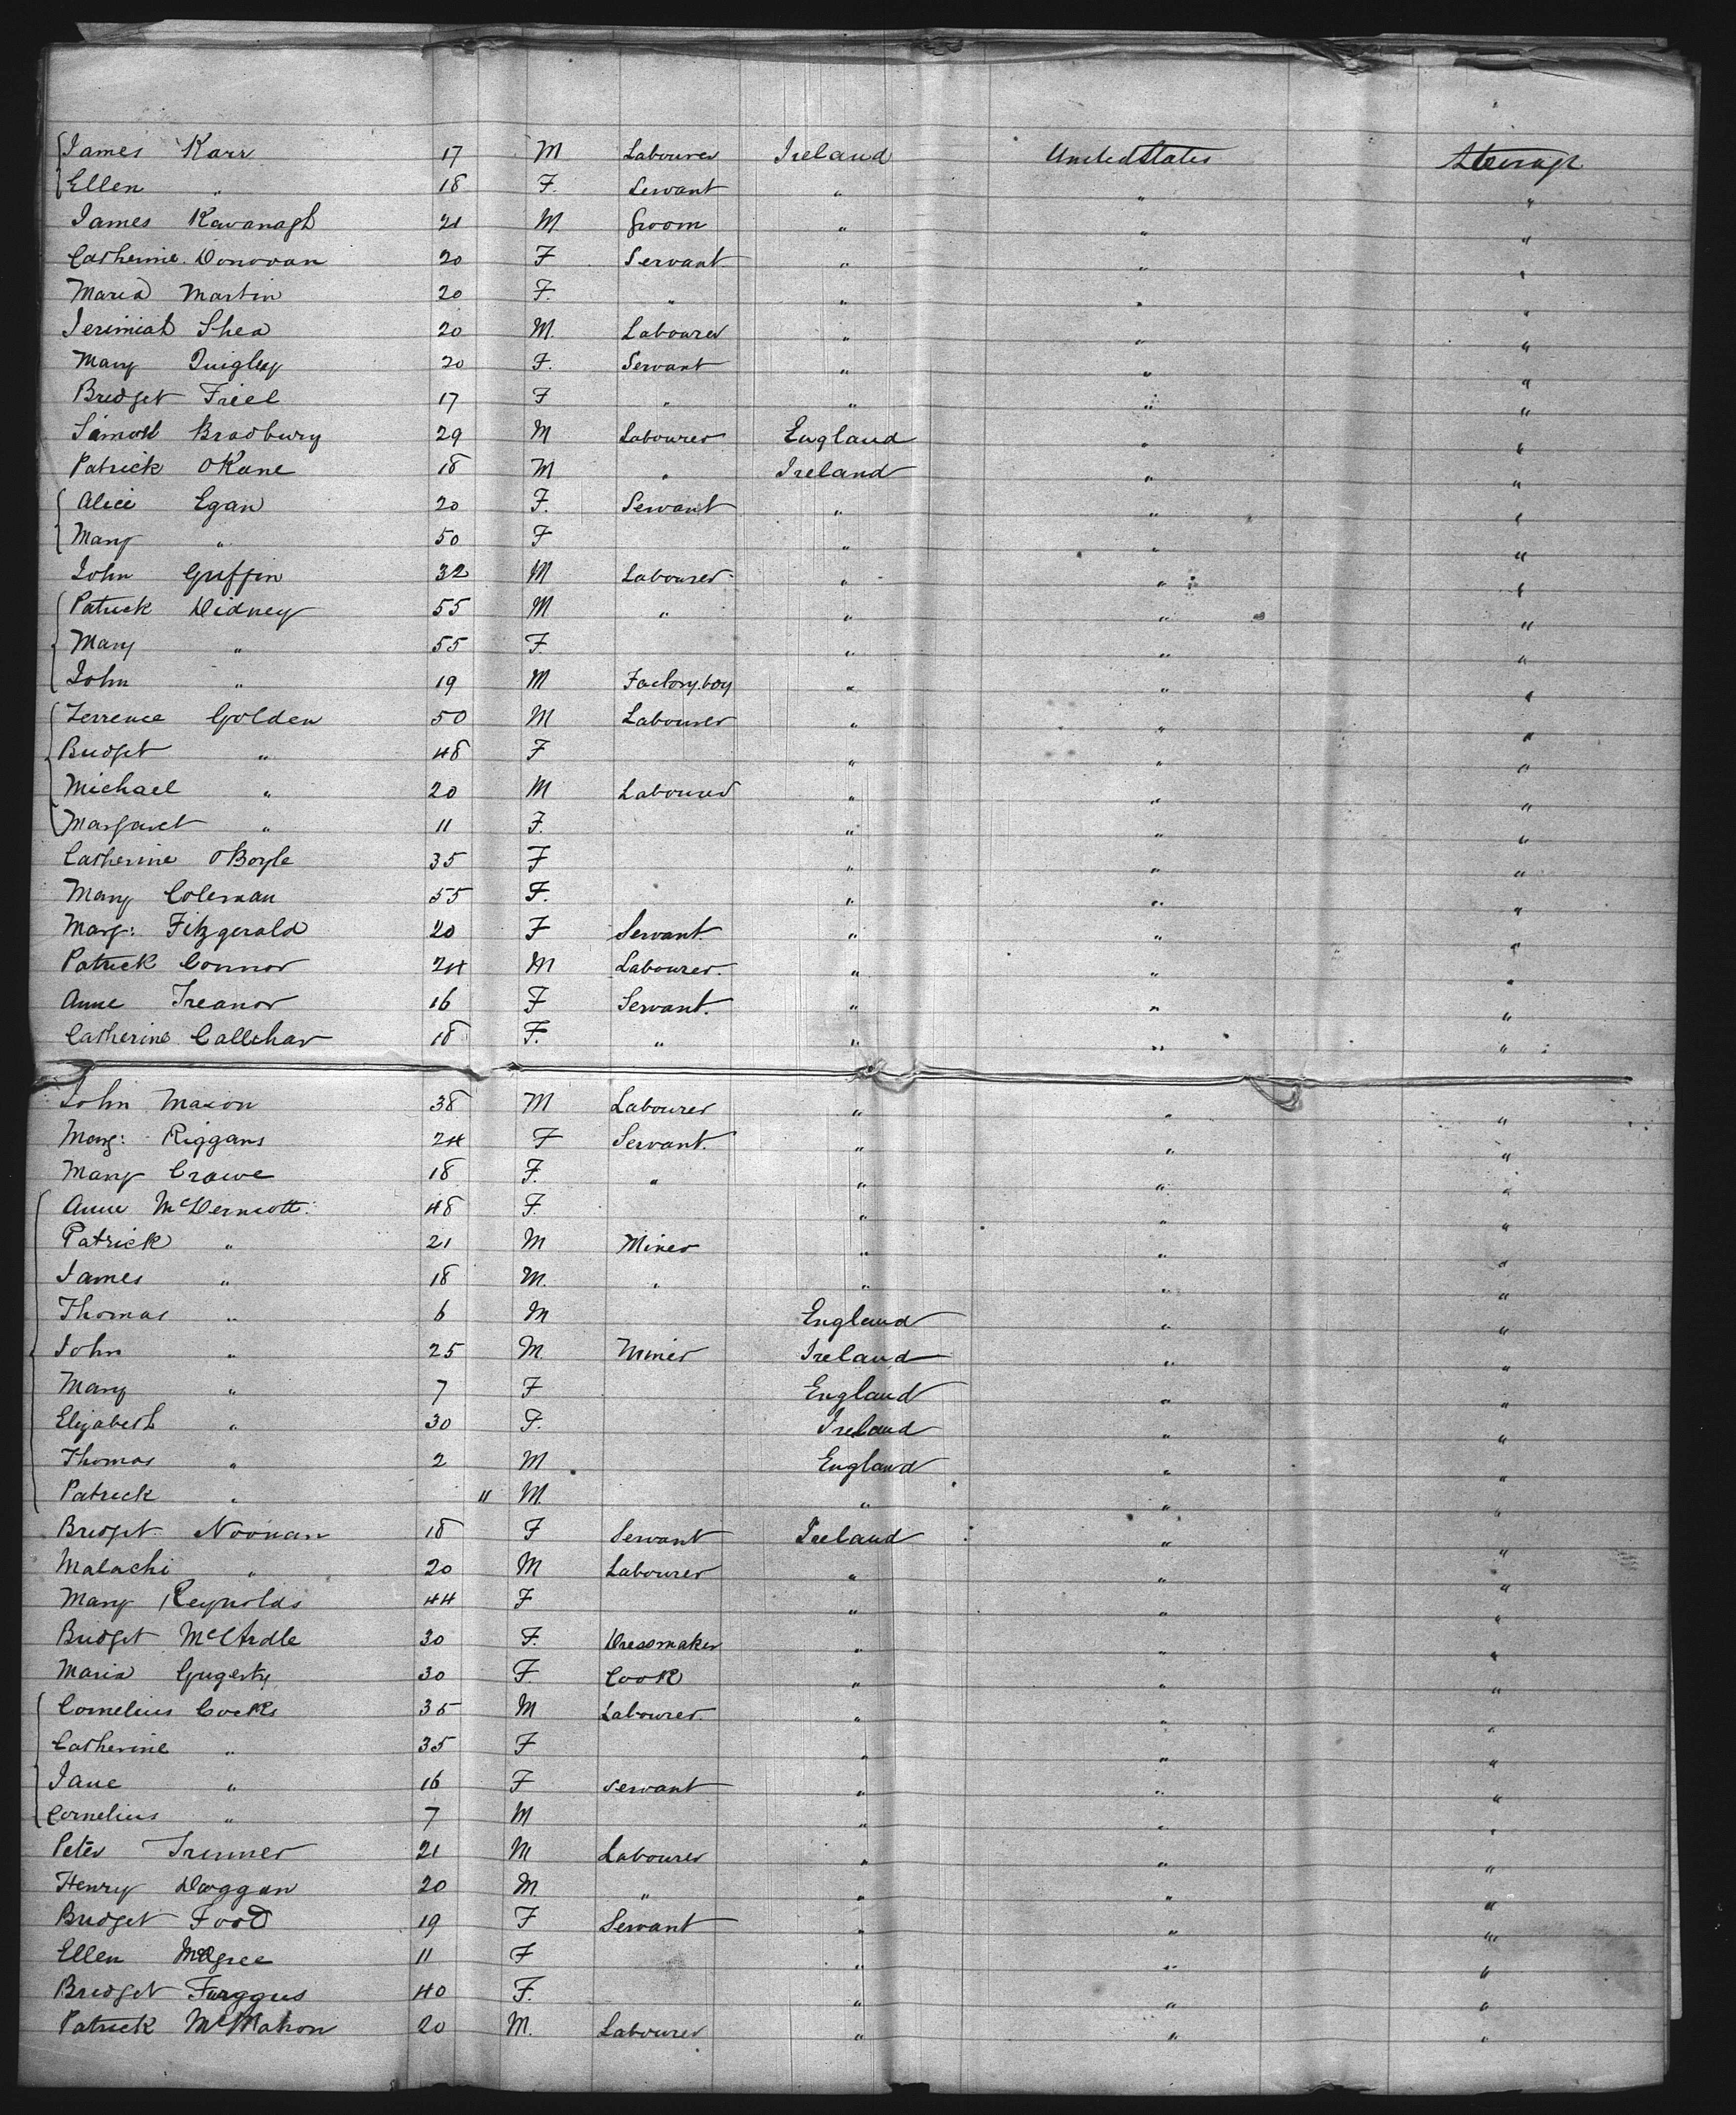 James Karr 17 M Labourer Ireland United States Steerage
Ellen " 18 F. Servant " " "
James Kavanagh 21 M Groom " " "
Catherine Donovan 20 F Servant " " "
Maria Martin 20 F. " " " "
Jerimiah Shea 20 M. Labourer " " "
Mary Quigley 20 F. Servant " " "
Bridget Friel 17 F " " " "
Bradbury 29 M Labourer England " "
Patrick OKane 18 M " Ireland " "
Alice Egan 20 F. Servant " " "
Mary " 50 F " " "
John Griffin 32 M Labourer " " "
Patrick Didney 55 M " " " "
Mary " 55 F. " " "
John " 19 M Factory boy " " "
Terrence Golden 50 M Labourer " " "
Bridget " 48 F " " "
Michael " 20 M Labourer " " "
Margaret " 11 F. " " "
Catherine OBoyle 35 F " " "
Mary Coleman 55 F. " " "
Marg: Fitzgerald 20 F Servant " " "
Patrick Connor 24 M Labourer. " " "
Anne Treanor 16 F Servant. " " "
Catherine Callehar 18 F. " " " "
John Mason 38 M Labourer " " "
Marg: Riggans 24 F Servant. " " "
Mary Crowe 18 F. " " " "
Anne McDermott 48 F. " " "
Patrick " 21 M Miner " " "
James " 18 M. " " " "
Thomas " 6 M England " "
John " 25 M Miner Ireland " "
Mary " 7 F England " "
Elizabeth " 30 F. Ireland " "
Thomas " 2 M England " "
Patrick " " M. " " "
Bridget Noonan 18 F Servant Ireland " "
Malachi " 20 M Labourer " " "
Mary Reynolds 44 F " " "
Bridget McArdle 30 F. Dressmaker " " "
Maria Gugerty 30 F. Cook " " "
Cornelius Cocks 35 M Labourer. " " "
Catherine " 35 F " " "
Jane " 16 F servant " " "
Cornelius " 7 M " " "
Peter 21 M Labourer " " "
Henry Doggan 20 M " " " "
Bridget Food 19 F Servant " " "
Ellen McGree 11 F " " "
Bridget Farggus 40 F. " " "
Patrick McMahon 20 M. Labourer " " "